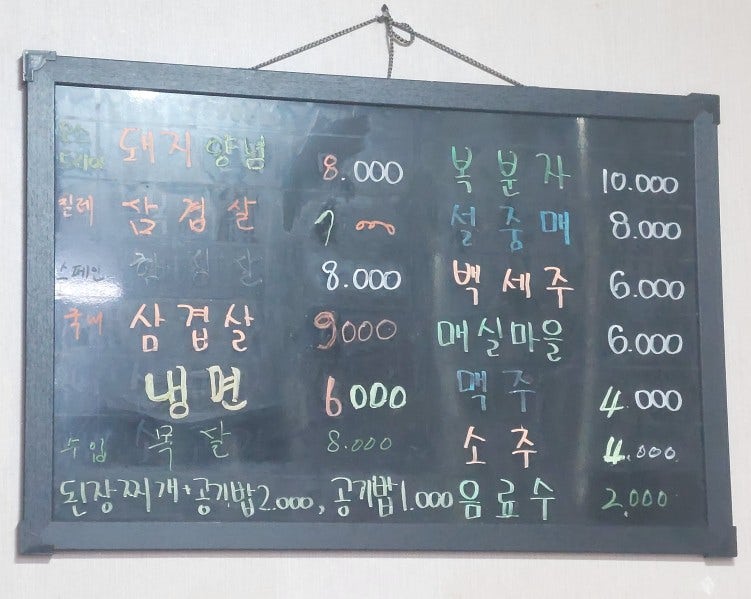 돼지양념 8.000
칠레 삼겹살 7 000
스페인 항정살 8.000
국내 삼겹살 9000
냉면 6000
수입 목살 8.000
된장찌개+공기밥2.000, 공기밥1.000
복분자 10.000
설중매 8.000
백세주 6.000
매실마을 6.000
맥주 4.000
소주 4.000
음료수 2.000